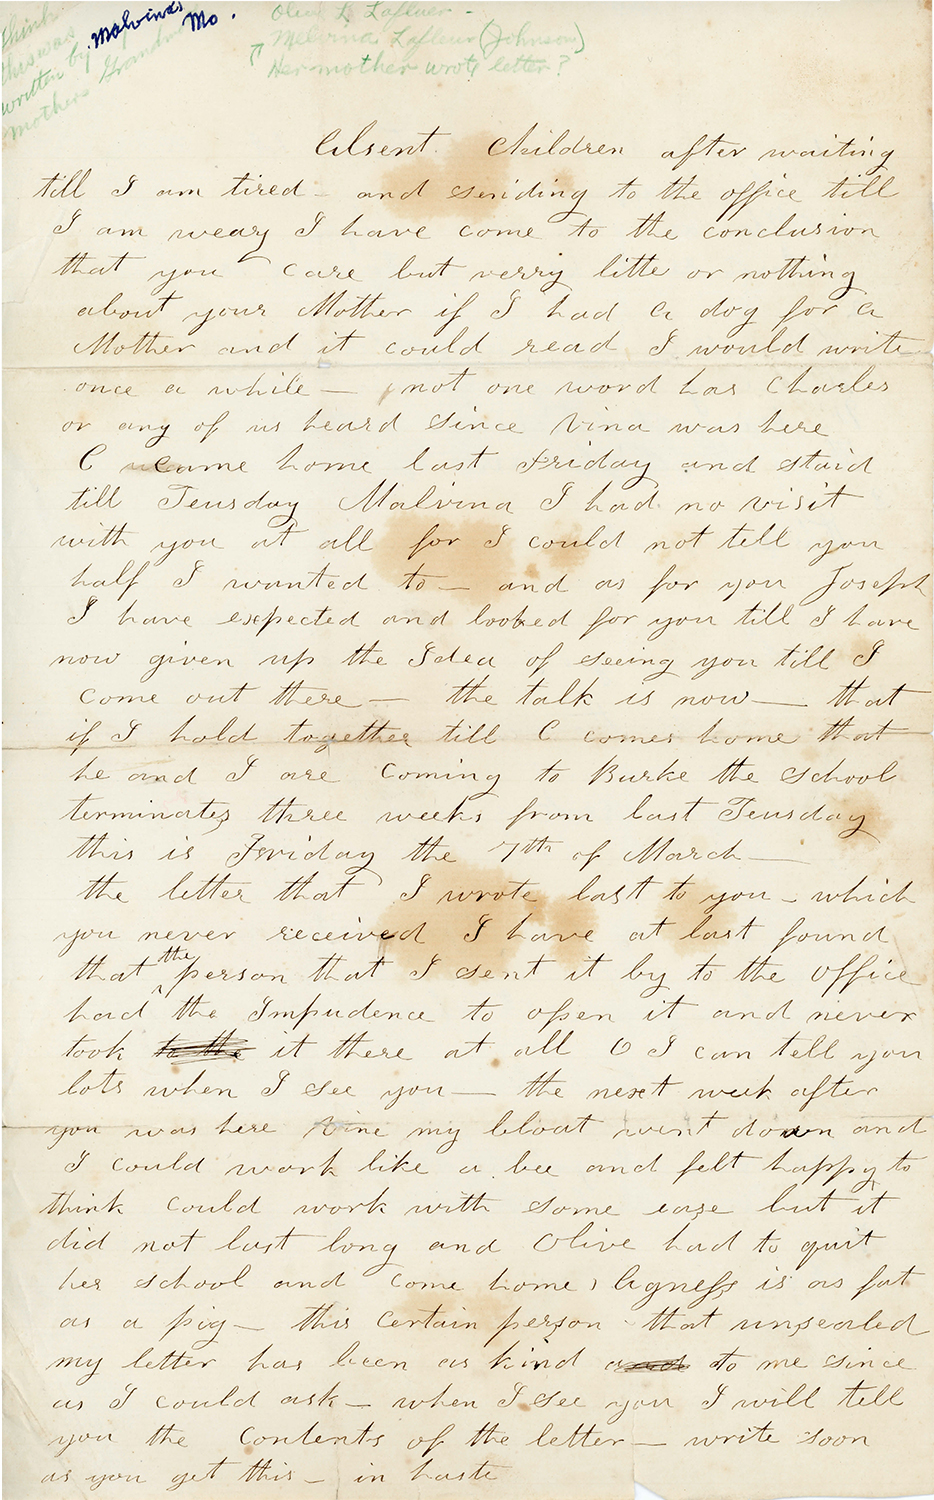 think this was written by mothers Grandma
Malvinas Mo.
Olive L. Lafleur -
Melvina Lafleur (Johnson)
Her mother wrote letter?
Absent Children after waiting
till I am tired - and sending to the office till
I am weary I have come to the conclusion
that you care but verry litte or nothing
about your Mother if I had a dog for a
Mother and it could read I would write
once a while — not one word has Charles
or any of us heard since Vina was here
C came home last Friday and staid
till Teusday Malvina I had no visit
with you at all for I could not tell you
half I wanted to — and as for you Joseph
I have expected and looked for you till I have
now given up the Idea of seeing you till I
come out there — the talk is now — that
if I hold together till C comes home that
he and I are coming to Burke the school
terminates three weeks from last Teusday
this is Friday the 7th of March —
the letter that I wrote last to you - which
you never received I have at last found
that the person that I sent it by to the office
had the Impudence to open it and never
took to the it there at all O I can tell you
lots when I see you — the next week after
you was here Vine my bloat went down and
I could work like a bee and felt happy to
think could work with some ease but it
did not last long and Olive had to quit
her school and come home, Agness is as fat
as a pig — this certain person that unsealed
my letter has been as kind and to me since
as I could ask — when I see you I will tell
you the Contents of the letter — write soon
as you get this — in haste